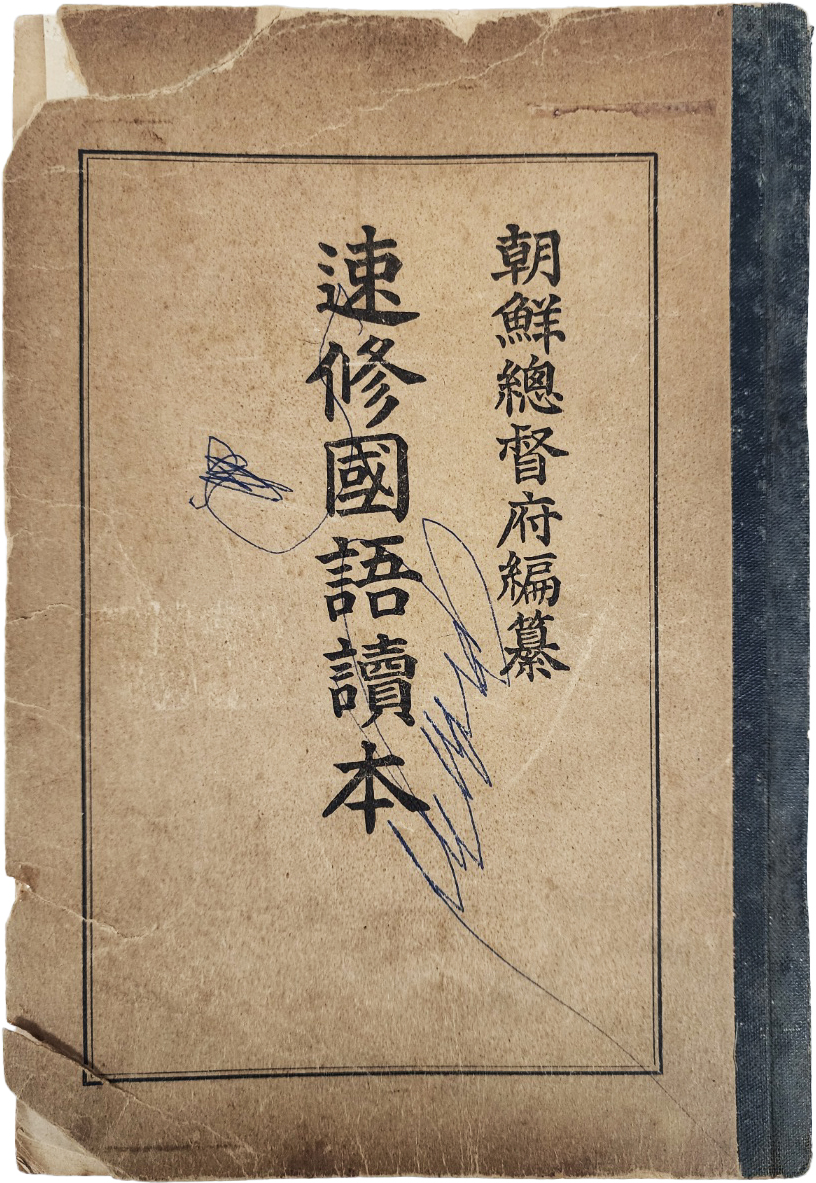 朝鮮總督府編纂
速修國語讀本